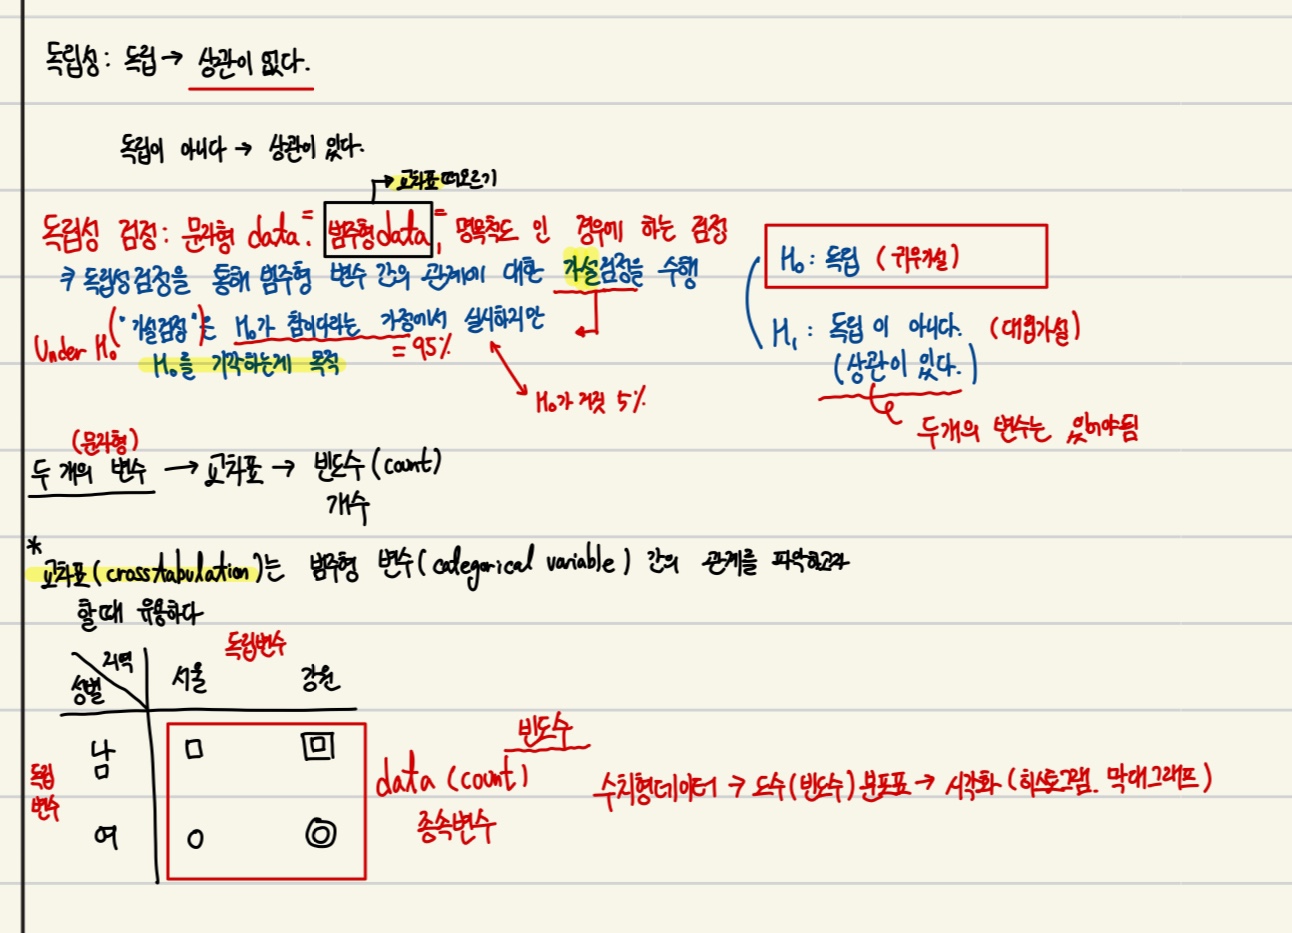 독립성: 독립 → 상관이 없다.
독립이 아니다 → 상관이 있다.
→ 교차표 떠오르기
독립성 검정: 문자형 data = 범주형 data = 명목척도 인 경우에 하는 검정
독립성검정을 통해 범주형 변수 간의 관계에 대한 가설검정을 수행
("가설검정")은 H₀가 참이다라는 가정에서 실시하지만
Under H₀
= 95%
H₀를 기각하는게 목적
H₀가 거짓 5%
H₀: 독립 (귀무가설)
H₁: 독립이 아니다. (대립가설)
(상관이 있다.)
두개의 변수는 있어야됨
(문자형)
두 개의 변수 → 교차표 → 빈도수(count)
개수
* 교차표(crosstabulation)는 범주형 변수(categorical variable) 간의 관계를 파악하고자
할때 유용하다
독립변수
지역 서울 강원
성별
남 □ 回
독립
변수
여 ○ ◎
빈도수
data (count)
종속변수
수치형데이터 → 도수(빈도수)분포표 → 시각화 (히스토그램. 막대그래프)